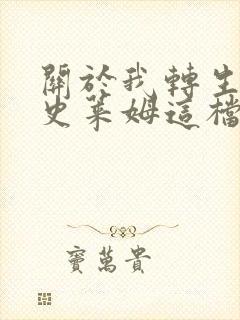 關於我轉生
史萊姆這檔
竇萬貴